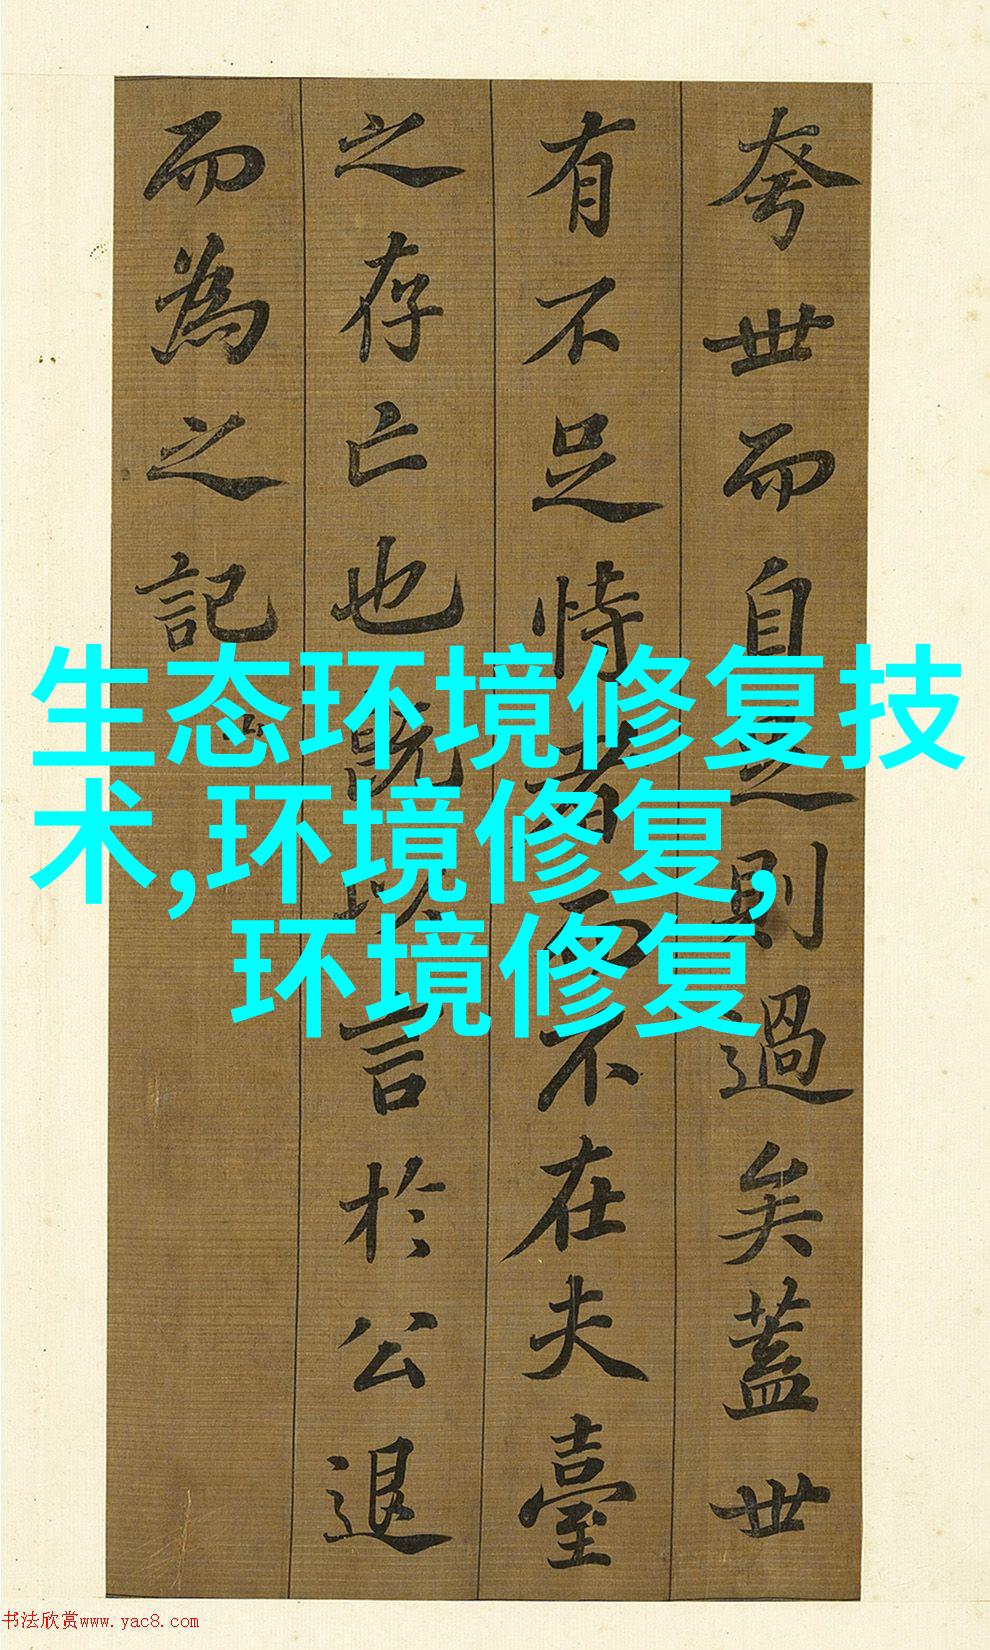 夸世而自足則過矣蓋世
有不足恃者而不在夫臺
之存亡也既以言於公退
而為之記
生态环境修复技
术,环境修复,
环境修复
书法欣赏www.yac8.com